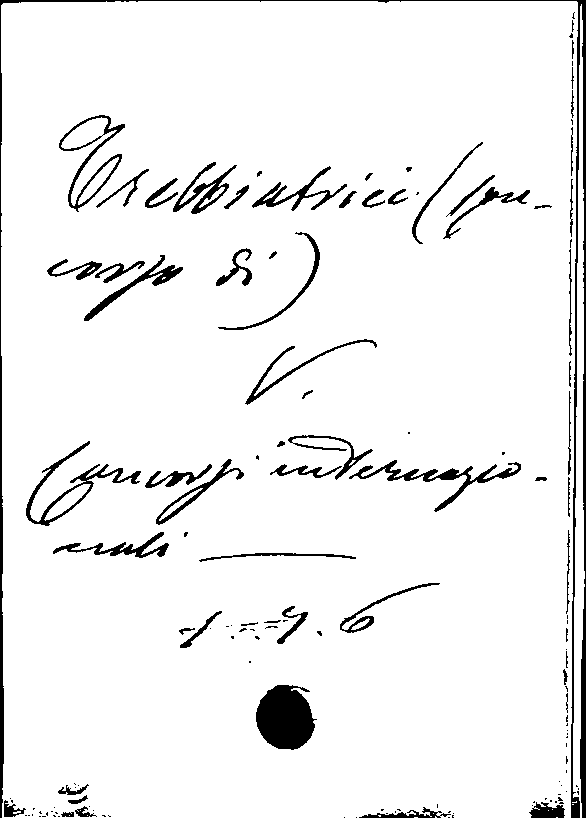 Trebbiatrici (con-
corso di)
V.
Concorsi internazio-
nali